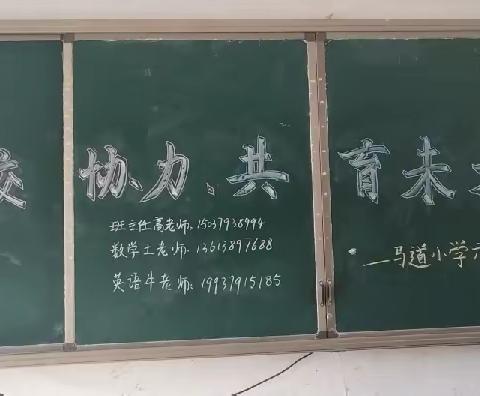 校 协力、共 育未
班主任高老师：15037936994
数学王老师：13613891688
英语牛老师：19937915185
—马道小学六